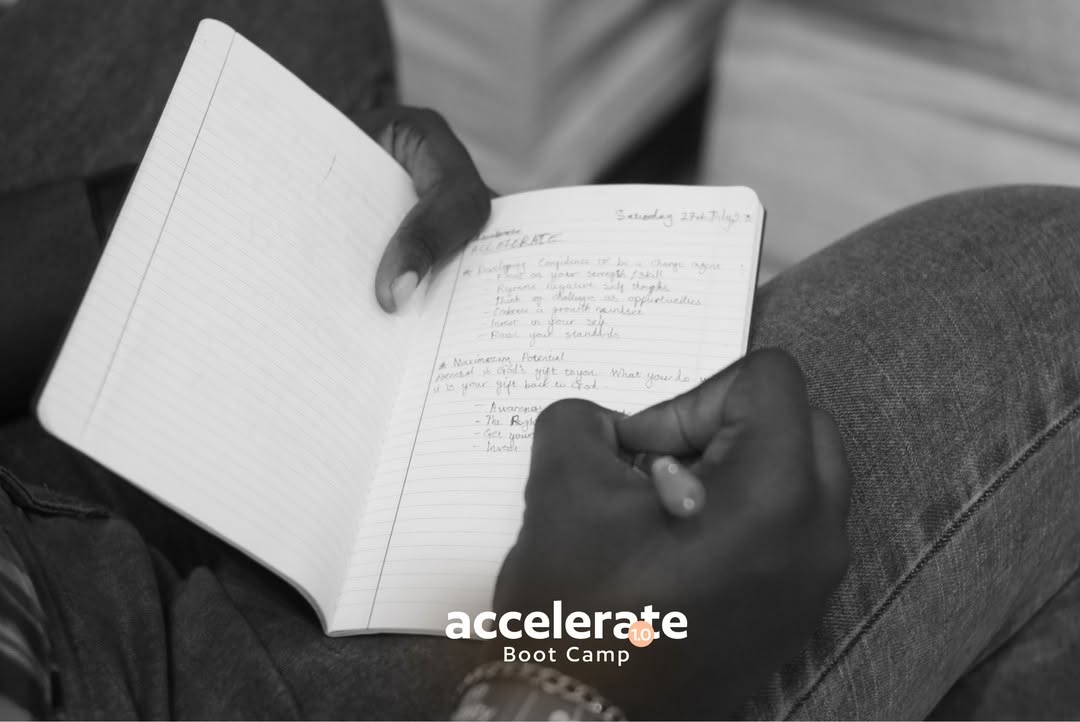 Saturday 27th July
ACCELERATE
* Developing Confidence to be a change agent
Focus on your strength & skill
Reframe Negative self thoughts
Think of challenges as oppurtunities
- Embrace a growth mindset
Invest in your self
- Raise your standards
* Maximizing Potential
Potential is God's gift to you. What you do
it is your gift back to God
- Awareness
- The Right
- Get your
- Invest
accelerate
1.0
Boot Camp